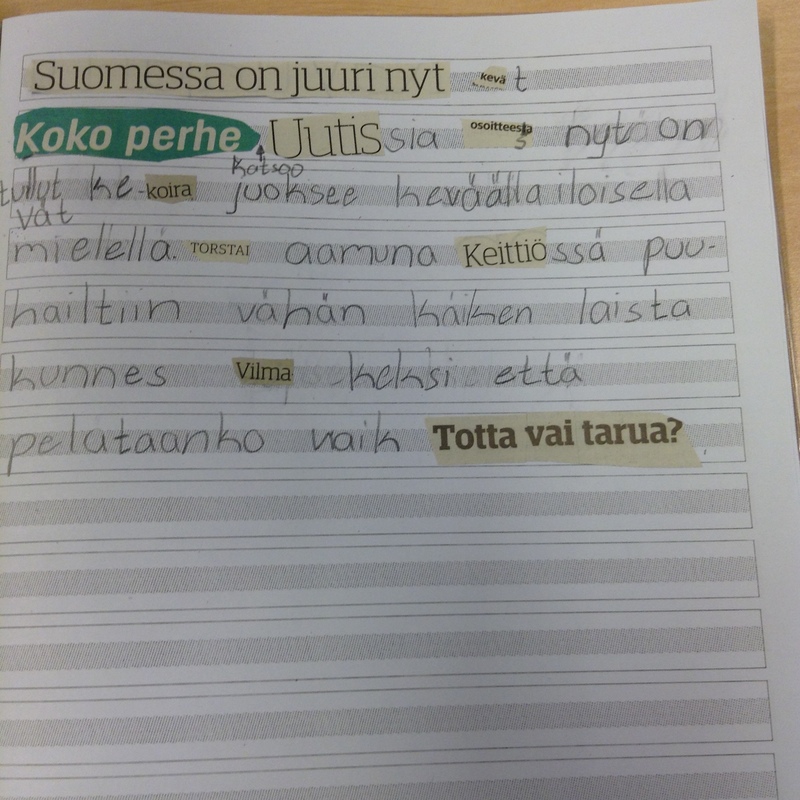 Suomessa on juuri nyt kevä t
Koko perhe Uutissia osoitteesta nyt on
katsoo
tullyt ke-koira juoksee keväällä iloisella
vät
mielellä. TORSTAI aamuna Keittiössä puu-
hailtiin vähän kaiken laista
kunnes Vilma keksi että
pelataanko vaik Totta vai tarua?